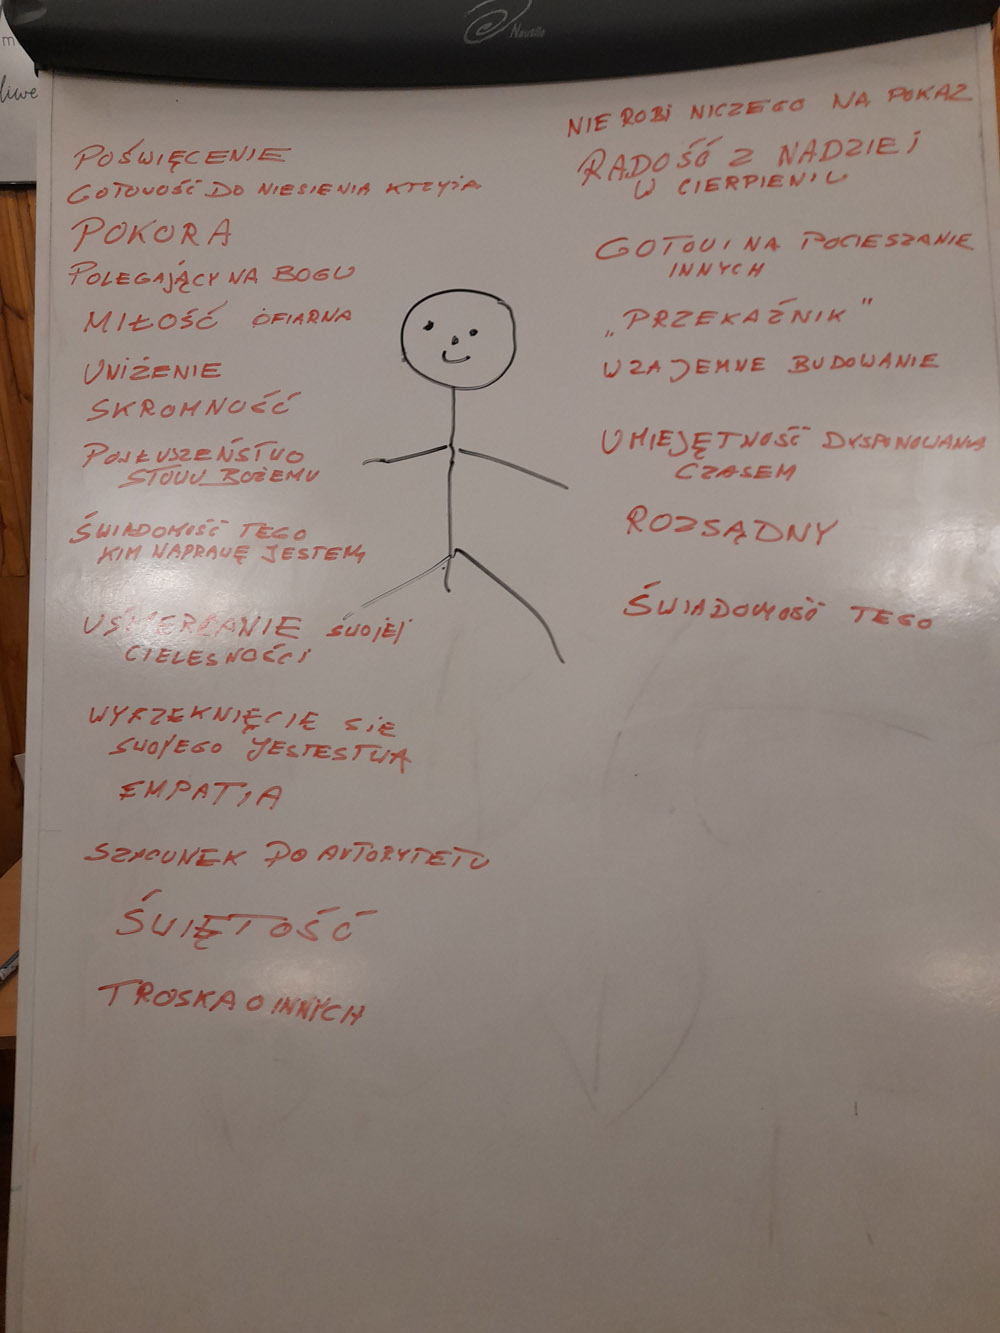 Nautilo
m
liwe
POŚWIĘCENIE
GOTOWOŚĆ DO NIESIENIA KRZYŻA
POKORA
POLEGAJĄCY NA BOGU
MIŁOŚĆ OFIARNA
UNIŻENIE
SKROMNOŚĆ
POSŁUSZEŃSTWO
SŁOWU BOŻEMU
ŚWIADOMOŚĆ TEGO
KIM NAPRAWĘ JESTEM
UŚMIERCANIE SWOJEJ
CIELESNOŚCI
WYRZEKNIĘCIE SIĘ
SWOJEGO JESTESTWA
EMPATIA
SZACUNEK DO AUTORYTETU
ŚWIĘTOŚĆ
TROSKA O INNYCH
NIE ROBI NICZEGO NA POKAZ
RADOŚĆ Z NADZIEI
W CIERPIENIU
GOTOWI NA POCIESZANIE
INNYCH
„PRZEKAŹNIK"
WZAJEMNE BUDOWANIE
UMIEJĘTNOŚĆ DYSPONOWANIA
CZASEM
ROZSĄDNY
ŚWIADOMOŚĆ TEGO